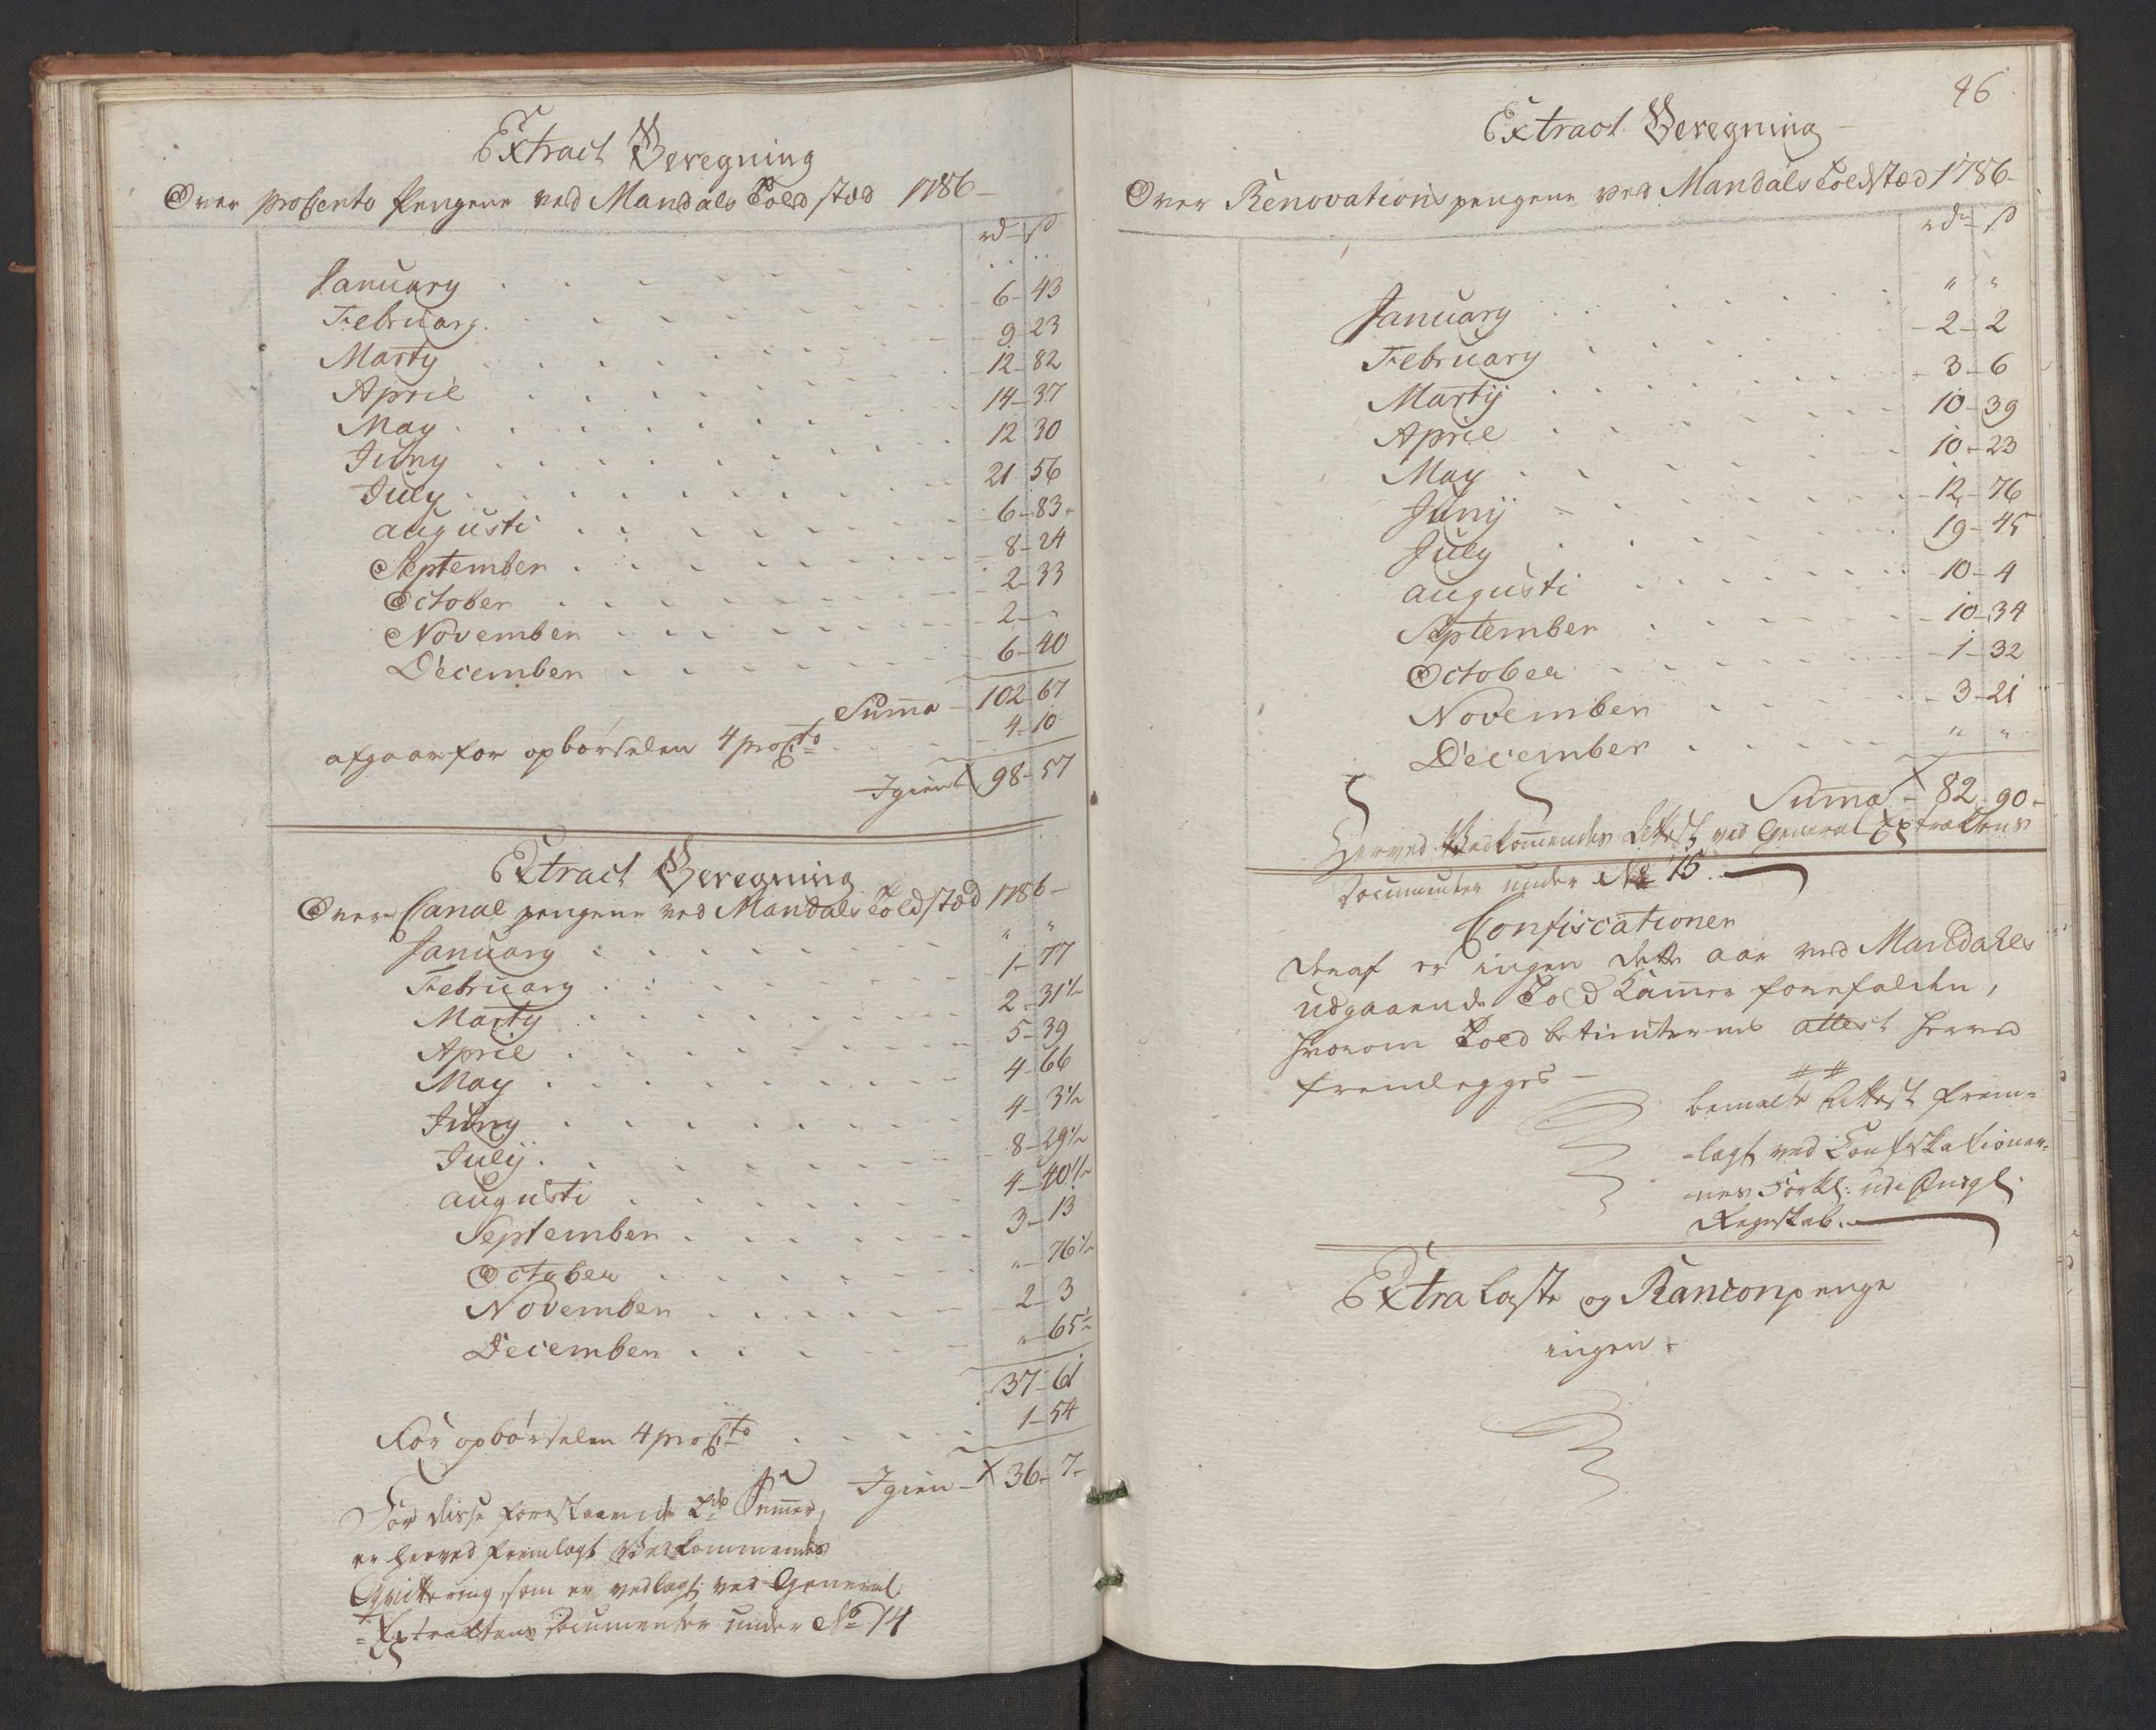 Extract Beregning
Over procento Pengene ved Mandals Told stæd 1786 –
rd ß
January . . . . . .
February . . . . . 6 – 43
Marty . . . . . 9 – 23
April . . . . . 12 – 82
May . . . . . 14 – 37
Juny . . . . . 12 30
July . . . . . 21 56
augusti . . . . . 6 – 83
September . . . . . 8 – 24
October . . . . . 2 – 33
November . . . . . 2 – "
December . . . . . 6 – 40
Suma – 102 67
afgaar for opbørselen 4 proCto . . . 4 – 10
Igien 98 – 57
Extract Beregning
Over Canal pengene ved Mandals Told stæd 1786 –
January . . . . . " "
February . . . . . 1 – 77
Marty . . . . . 2 – 31½
April . . . . . 5 – 39
May . . . . . 4 – 66
Juny . . . . . 4 – 3½
July . . . . . 8 – 29½
augusti . . . . . 4 – 40½
September . . . . . 3 – 13
October . . . . . " – 76½
November . . . . . 2 – 3
December . . . . . " – 65½
37 – 61
For opbørselen 4 proCto . . . . 1 – 54
Igien – X 36 – 7 –
For disse forestaaende 2de Summer,
er herved fremlagt Vedkommendes
Qvittering, som er vedlagt ved General
= Extractens Documenter under No 14
46
Extract Beregning –
Over Renovations pengene ved Mandals Toldstæd 1786 –
rdr ß
January . . . . . " "
February . . . . . 2 – 2
Martij . . . . . 3 – 6
April . . . . . 10 – 39
May . . . . . 10 – 23
Junij . . . . . 12 – 76
July . . . . . 19 – 45
augusti . . . . . 10 – 4
September . . . . . 10 – 34
October . . . . . 1 – 32
November . . . . . 3 – 21
December . . . . . " "
Suma X 82 – 90 –
Herved Vedkommendes Attest ved General Extractens
Documenter under No 15.
Confiscationer
Deraf er ingen dette aar ved Mandahls
udgaaende Told Kamer forefalden,
hvorom Told betienternes attest herved
fremlegges –
bemelte Attest frem=
=lagt ved Confiskationer=
=nes Forkl: udi
Regnskab.
Extra Laste og Ranconpenge
ingen